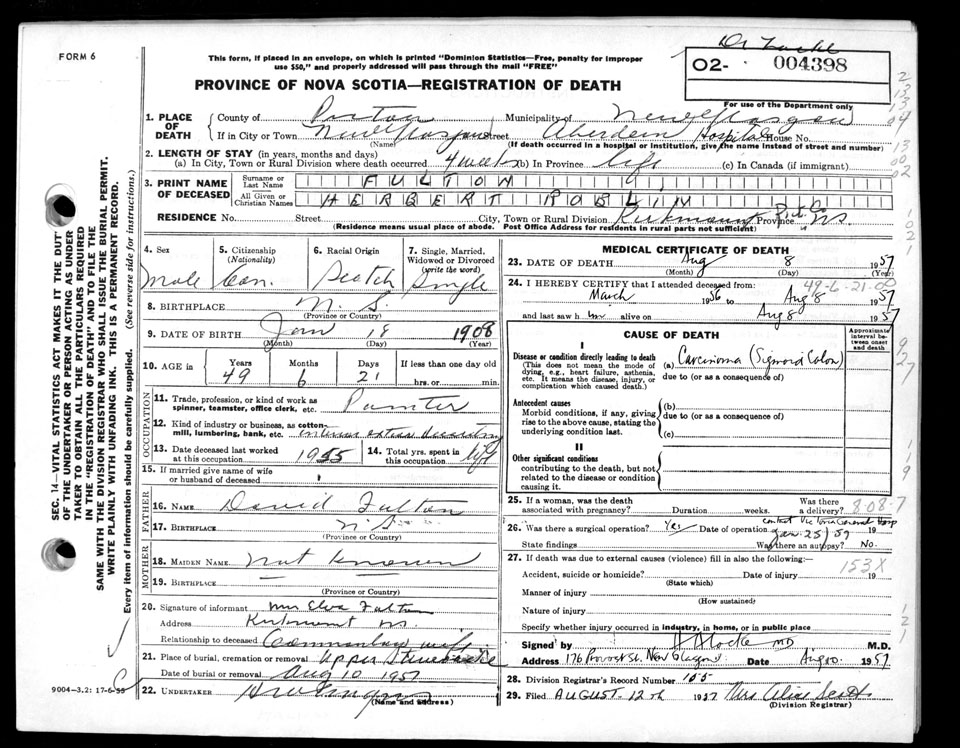 FORM 6
This form, if placed in an envelope, on which is printed "Dominion Statistics—Free, penalty for improper
use $50," and properly addressed will pass through the mail "FREE"
PROVINCE OF NOVA SCOTIA—REGISTRATION OF DEATH
O2- 004398
For use of the Department only
1. PLACE OF DEATH
County of Pictou Municipality of New Glasgow
If in City or Town New Glasgow Street Aberdeen Hospital House No.
(Name) (If death occurred in a hospital or institution, give the name instead of street and number)
2. LENGTH OF STAY (in years, months and days)
(a) In City, Town or Rural Division where death occurred 4 weeks (b) In Province life (c) In Canada (if immigrant)
3. PRINT NAME OF DECEASED
Surname or Last Name FULTON
All Given or Christian Names HERBERT
RESIDENCE No. Street City, Town or Rural Division Kirkmount Pict. Co. Province N.S.
(Residence means usual place of abode. Post Office Address for residents in rural parts not sufficient)
4. Sex Male
5. Citizenship (Nationality) Can.
6. Racial Origin Scotch
7. Single, Married, Widowed or Divorced (write the word) Single
8. BIRTHPLACE N.S.
(Province or Country)
9. DATE OF BIRTH Jan 18 1908
(Month) (Day) (Year)
10. AGE in Years 49 Months 6 Days 21 If less than one day old hrs. or min.
OCCUPATION
11. Trade, profession, or kind of work as spinner, teamster, office clerk, etc. Painter
12. Kind of industry or business, as cotton-mill, lumbering, bank, etc.
13. Date deceased last worked at this occupation 1955
14. Total yrs. spent in this occupation life
15. If married give name of wife or husband of deceased
FATHER
16. NAME David Fulton
17. BIRTHPLACE N.S.
(Province or Country)
MOTHER
18. MAIDEN NAME Not known
19. BIRTHPLACE —
(Province or Country)
20. Signature of informant Mrs Elva Fulton
Address Kirkmount N.S.
Relationship to deceased Common law wife
21. Place of burial, cremation or removal Upper Stewiacke
Date of burial or removal Aug 10 1957
22. UNDERTAKER
(Name and address)
MEDICAL CERTIFICATE OF DEATH
23. DATE OF DEATH Aug 8 1957
(Month) (Day) (Year)
49-6-21-00
24. I HEREBY CERTIFY that I attended deceased from:
March 1956 to Aug 8 1957
and last saw him alive on Aug 8 1957
CAUSE OF DEATH
Approximate interval between onset and death
I
Disease or condition directly leading to death
(This does not mean the mode of dying, e.g., heart failure, asthenia, etc. It means the disease, injury, or complication which caused death.)
(a) Carcinoma (Sigmoid Colon)
due to (or as a consequence of)
Antecedent causes
Morbid conditions, if any, giving rise to the above cause, stating the underlying condition last.
(b)
due to (or as a consequence of)
(c)
II
Other significant conditions
contributing to the death, but not related to the disease or condition causing it.
25. If a woman, was the death associated with pregnancy? Duration weeks. Was there a delivery?
808-7
26. Was there a surgical operation? Yes Date of operation Jan 25/57 19
Victoria General Hosp
State findings Was there an autopsy? No.
27. If death was due to external causes (violence) fill in also the following:—
153X
Accident, suicide or homicide? Date of injury 19
(State which)
Manner of injury
(How sustained)
Nature of injury
Specify whether injury occurred in industry, in home, or in public place
Signed by H A Locke MD M.D.
Address 176 Provost St. New Glasgow Date Aug 10. 1957
28. Division Registrar's Record Number 155
29. Filed AUGUST 12th 1957 Mrs Alice Scott
(Division Registrar)
SEC. 14—VITAL STATISTICS ACT MAKES IT THE DUTY
OF THE UNDERTAKER OR PERSON ACTING AS UNDER
TAKER TO OBTAIN ALL THE PARTICULARS REQUIRED
IN THE "REGISTRATION OF DEATH" AND TO FILE THE
SAME WITH THE DIVISION REGISTRAR WHO SHALL ISSUE THE BURIAL PERMIT.
WRITE PLAINLY WITH UNFADING INK. THIS IS A PERMANENT RECORD.
Every item of information should be carefully supplied. (See reverse side for instructions.)
9004-3.2: 17-6-55